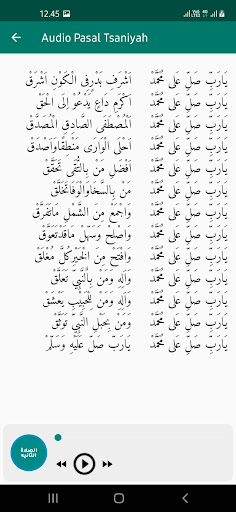 12.45
Audio Pasal Tsaniyah
يَارَبِّ صَلِّ عَلى مُحَمَّدْ أَشْرَفِ بَدْرٍفِى الْكَوْنِ اَشْرَقْ
يَارَبِّ صَلِّ عَلى مُحَمَّدْ اَكْرَمِ دَاعٍ يَدْعُوْ اِلَى الْحَقْ
يَارَبِّ صَلِّ عَلى مُحَمَّدْ اَلْمُصْطَفَى الصَّادِقِ الْمُصَدَّقْ
يَارَبِّ صَلِّ عَلى مُحَمَّدْ اَحْلَى الْوَارَى مَنْطِقًاوَاَصْدَقْ
يَارَبِّ صَلِّ عَلى مُحَمَّدْ اَفْضَلِ مَنْ بِالتُّقَى تَحَقَّقْ
يَارَبِّ صَلِّ عَلى مُحَمَّدْ مَنْ بِالسَّخَاوَالْوَفَاتَخَلَّقْ
يَارَبِّ صَلِّ عَلى مُحَمَّدْ وَاجْمَعْ مِنَ الشَّمْلِ مَاتَفَرَّقْ
يَارَبِّ صَلِّ عَلى مُحَمَّدْ وَاصْلِحْ وَسَهِّلْ مَاقَدْتَعَوَّقْ
يَارَبِّ صَلِّ عَلى مُحَمَّدْ وَافْتَحْ مِنَ الْخَيْرِكُلَّ مُغْلَقْ
يَارَبِّ صَلِّ عَلى مُحَمَّدْ وَاَلِهِ وَمَنْ بِالنَّبِيِّ تَعَلَّقْ
يَارَبِّ صَلِّ عَلى مُحَمَّدْ وَاَلِهِ وَمَنْ لِلْحَبِيْبِ يَعْشَقْ
يَارَبِّ صَلِّ عَلى مُحَمَّدْ وَمَنْ بِحَبْلِ النَّبِيِّ تَوَثَّقْ
يَارَبِّ صَلِّ عَلى مُحَمَّدْ يَارَبِّ صَلِّ عَلَيْهِ وَسَلِّمْ
الصلاة
الثانية